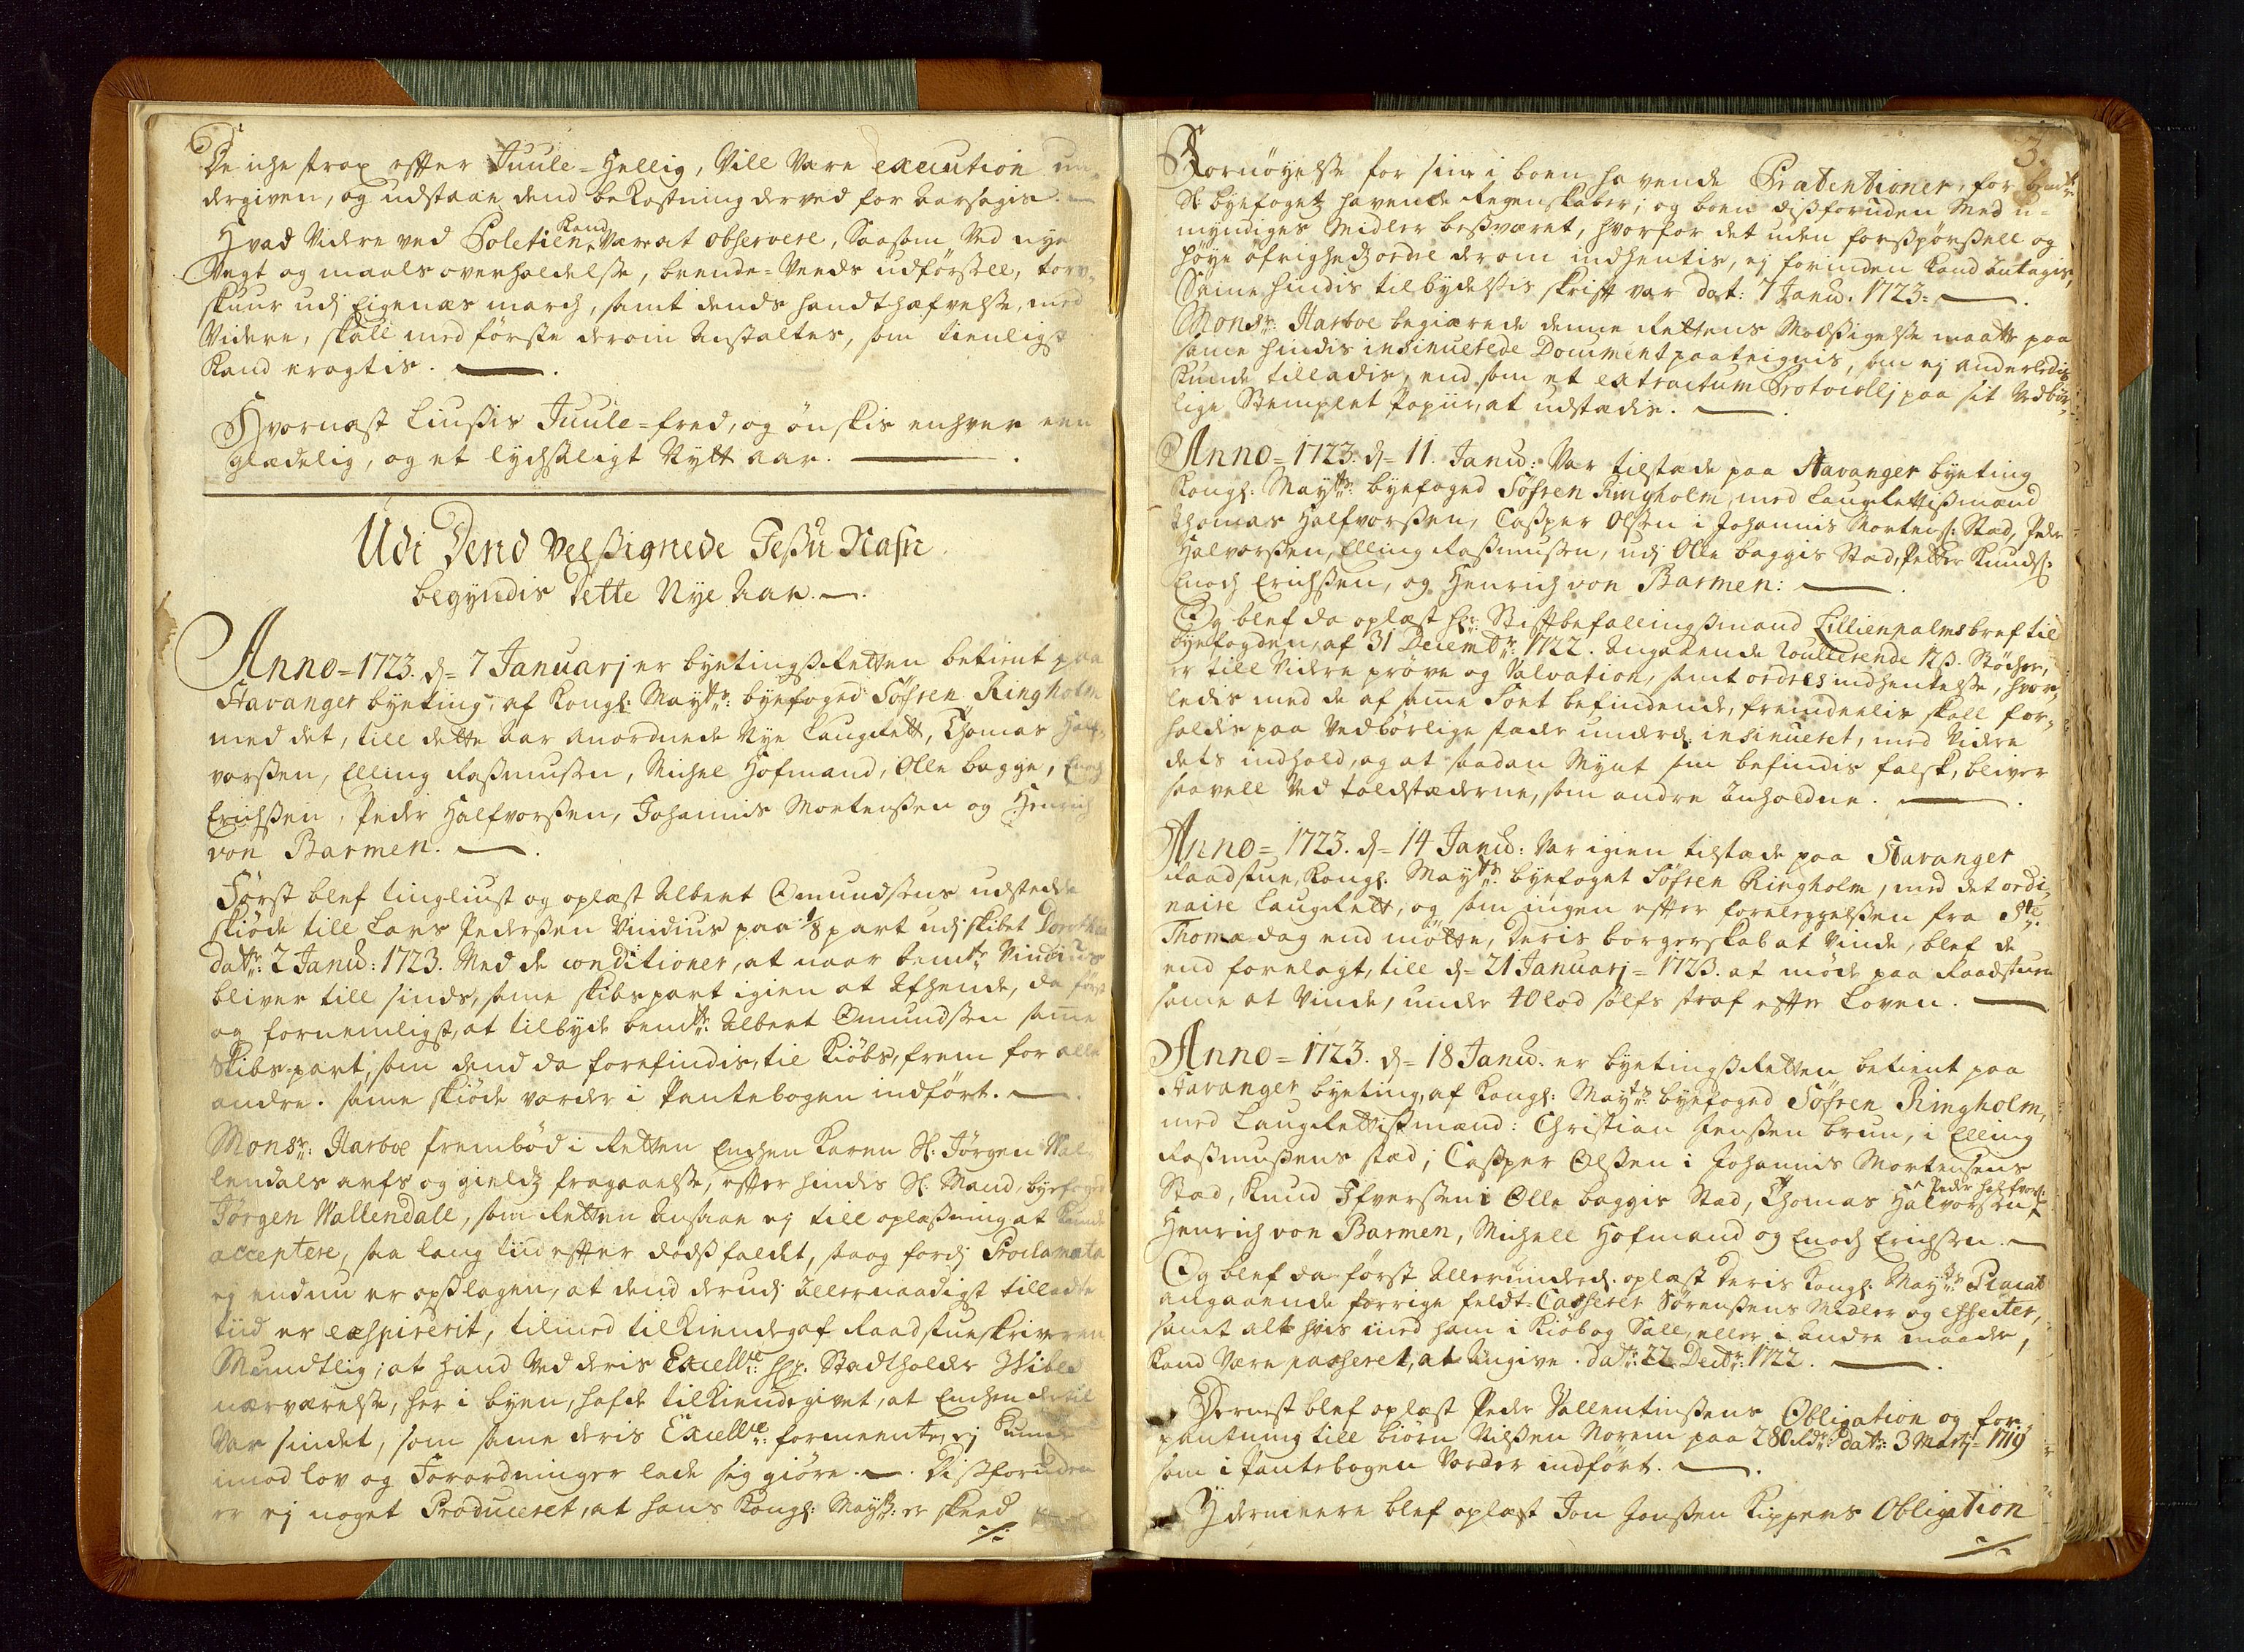 De iche strax effter Juule-Hellig, Vill Være execution un-
dergiven, og udstaae dend bekostning derved for aarsagis.
Hvad Videre ved Poletien Kand Være at observere, Saasom Ved nye
Vegt og maals overholdelse, brende-Veeds udførsell, torv-
skuur udj Eigenæs march, samt dends handthæfvelse, med
Videre, skall med første derom anstaltes, som tienligst
Kand eragtis.
Hvornæst liusis Juule-fred, og ønskis enhver een
glædelig, og et lychsaligt Nytt aar.
Udi Dend Velsignede Jesu Nafn
begyndis dette Nye Aar.
Anno-1723. d- 7 Januarj er byetings Retten betient paa
Stavanger byeting, af Kongl: Maytts: byefoged Søfren Ringholm
med det, till dette aar anordnede Nye Laugrett, Thomas Hal-
vorsen, Elling Rasmussen, Michel Hofmand, Olle bagge, Enoch
Erichsen, Peder Halfvorsen, Johannis Mortensen og Henrich
von Barmen.
Først blef tingliust og oplæst Albert Omundsens udstedde
skiøde till Lars Pedersen Vindius paa 1/8 part udj skibet Dorothea
datr: 2 Janu: 1723. Med de conditioner, at naar bemte Vindius
bliver till sinds, same skibspart igien at afhende, da først
og fornemligst, at tilbyde bemte: Albert Omundsen same
Skibs-part, som dend da forefindis, til Kiøbs, frem for alle
andre. same skiøde vorder i Pantebogen indført.
Monsr: Harboe frembød i Retten Enchen Karen Sl: Jørgen Wal-
lendals arfs og gields fragaaelse, effter hindis Sl: Mand, byefoged
Jørgen Wallendall, som Retten ansaae ej till oplæsning at kunde
acceptere, saa lang tiid effter dødsfaldet, saa og fordj Proclamata
ej endnu er opslagen, at dend derudj allernaadigst tilladte
tiid er exspirerit, tilmed tilkiendegaf Raadstueskriveren
Mundtlig; at hand Ved deris Excellce: Hr. Stadtholder Wibes
nærværelse, her i byen, hafde tilkiendegivet, at Enchen dertil
Var sindet, som same deris Excellce: formeente, ej kunde
imod lov og Forordninger lade sig giøre. Disforuden
er ej noget Produceret, at hans Kongl: Maytt: er skeed
3.
Fornøyelse for sine i boen havende Prætentioner, for bemte
Sl: byefogetz havende Regenskaber; og boen disforuden Med u-
myndiges Midler besværet, hvorfor det uden forspørsell og
høye øfrigheds ordre derom indhentis, ej forinden kand antagis,
Same hindis tilbydelsis skrifft var dat: 7 Janu. 1723.
Monsr: Harboe begiærede denne Rettens Modsigelse maatte paa
same hindis insinuerede Document paateignis, som ej anderledis
kunde tilladis, end som et extractum Protocollj paa sit Vedbør-
lige Stemplet Papiir, at udstædis.
Anno-1723. d- 11. Janu: Var tilstæde paa Stavanger byeting
Kongl: Maytts: byefoged Søfren Ringholm, med Laugrettismænd
Thomas Halfvorsen, Casper Olsen i Johannis Mortens: Stæd, Peder
Halvorsen, Elling Rasmussen, udj Olle baggis Stæd, Petter Knuds:
Enoch Erichsen, og Henrich von Barmen:
Og blef da oplæst Hr: Stiftbefallingsmand Lillienpalms bref til
byefogden, af 31 Decembr: 1722. angaaende roullerende 12 s. Støcher,
er till Videre prøve og Valvation, samt ordres indhentelse, hvor-
ledis med de af same Sort befindende, fremdeelis skall for-
holdis paa Vedbørlige stæder underd: insinueret, med Videre
dets indhold, og at saadan Mynt som befindis falsk, bliver
saavell Ved toldstæderne, som andre anholdne.
Anno-1723. d- 14 Janu: Var igien tilstæde paa Stavanger
Raadstue, Kongl: Maytts: byefoget Søfren Ringholm, med det ordi-
naire Laugrett, og som ingen effter forelæggelsen fra Ste.
Thomæ dag end møtte, deris borgerskab at Vinde, blef de
end forelagt, till d- 21 Januarj-1723. at møde paa Raadstuen
same at Vinde, under 40 lod sølfs straf effter Loven.
Anno-1723. d- 18 Janu. er byetings Retten betient paa
Stavanger byeting, af Kongl: Maytts: byefoged Søfren Ringholm,
med Laugrettismænd: Christian Jensen brun, i Elling
Rasmussens stæd, Casper Olsen i Johannis Mortensens
Stæd, Knud Ifversen i Olle baggis Stæd, Thomas Halvorsen, Peder Halfvors:
Henrich von Barmen, Michell Hofmand og Enoch Erichsen.
Og blef da først allerunderd. oplæst deris Kongl: Maytts: Placat
angaaende forrige feldt-Casserer Sørensens Midler og effecter,
samt alt hvis med ham i Kiøb og Sall, eller i andre maader,
kand Være passeret, at angive. datr: 22 Decbr: 1722.
Dernest blef oplæst Peder Vallentinsens Obligation og for-
pantning till biørn Nilsen Norem paa 280 Rdr: datr: 3 Martj-1719
som i Pantebogen Vorder indført.
Ydermeere blef oplæst Jon Jonsen Kippers Obligation